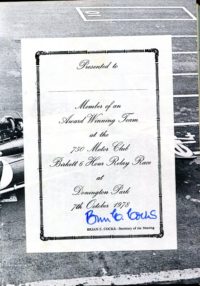 Presented to
Member of an
Award Winning Team
at the
750 Motor Club
Birkett 6 Hour Relay Race
at
Donington Park
7th October 1978
Brian E. Cocks
BRIAN E. COCKS. Secretary of the Meeting